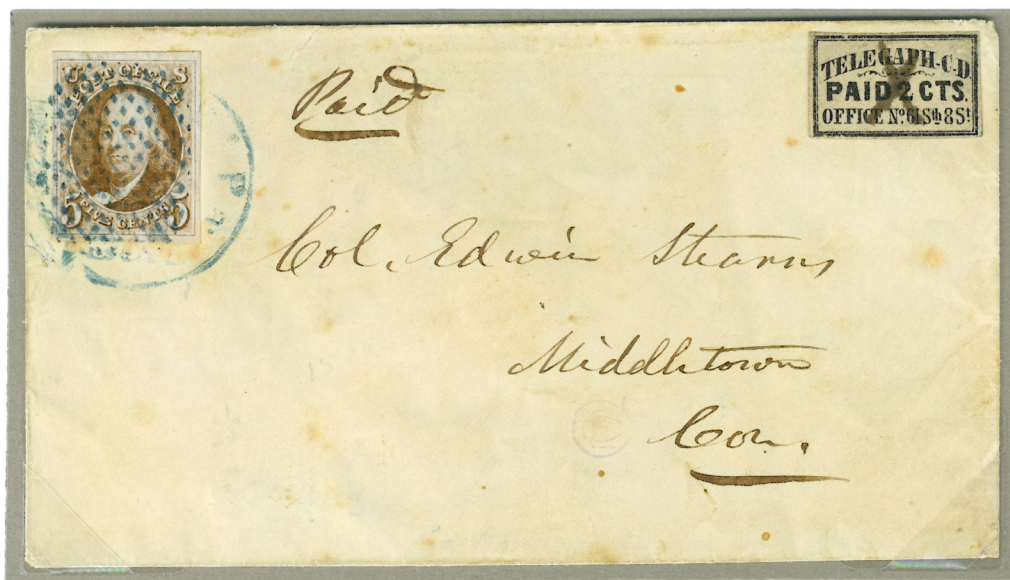 U POST OFFICE S
5 FIVE CENTS 5
Paid
TELEGAPH-C-D.
PAID 2 CTS.
OFFICE Nº 61 Sth 8 St
Col. Edwin Stearns
Middletown
Con.